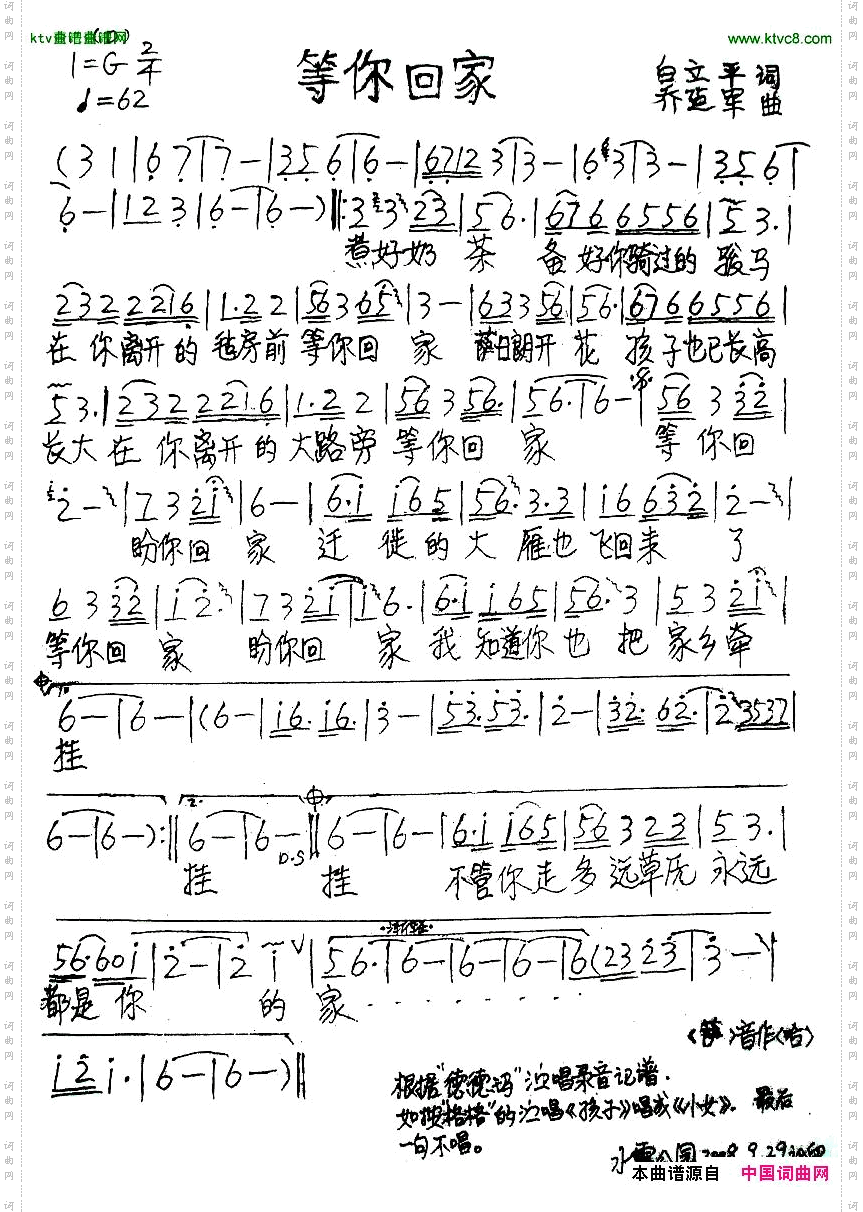 ktv曲谱曲谱网
www.ktvc8.com
1=G 2/4
♩=62
等你回家
白立平 词
乔巡军 曲
(3 1|6 7|7 -|3 5 6|6 -|6712 3|3 -|6 3|3 -|35 6|
6 -|12 3|6 -|6 -)‖:3 3 23|5 6.|676 6556|5 3.|
煮好奶 茶 备好你骑过的 骏马
232 2216|1.2 2|563 65|3 -|633 56|56.|6766 6556|
在你离开的 毡房前 等你回 家 萨日朗开 花 孩子也已长高
5 3.|232 2216|1.2 2|56 3 56.|56.|6 -|56 3 32|
长大 在你离开的大路旁 等你回 家 等你回
2 -|7 3 21|6 -|6.1 165|56. 3.3|16 632|2 -|
盼你回 家 迁徙的大雁也飞回来 了
6 3 32|1 2.|7 3 21|1 6.|6.1 165|56. 3|5 3 21|
等你回 家 盼你回 家 我知道你也把家乡牵
6 -|6 -|(6 -|16. 16.|3 -|53. 53.|2 -|32. 62.|2 3537|
挂
6 -|6 -):‖6 -|6 -‖6 -|6 -|6.1 165|56 3 23|5 3.|
2.
D.S
挂 挂 不管你走多远草原永远
56. 60 1|2 -|2 1|56.|6 -|6 -|6 -|6(23 23|3 -|
都是你 的家
12 1.|6 -|6 -)‖
根据“德德玛”演唱录音记谱.
如按“格格”的演唱《孩子》唱成《小女》. 最后
一句不唱。
本曲谱源自 中国词曲网
词曲网